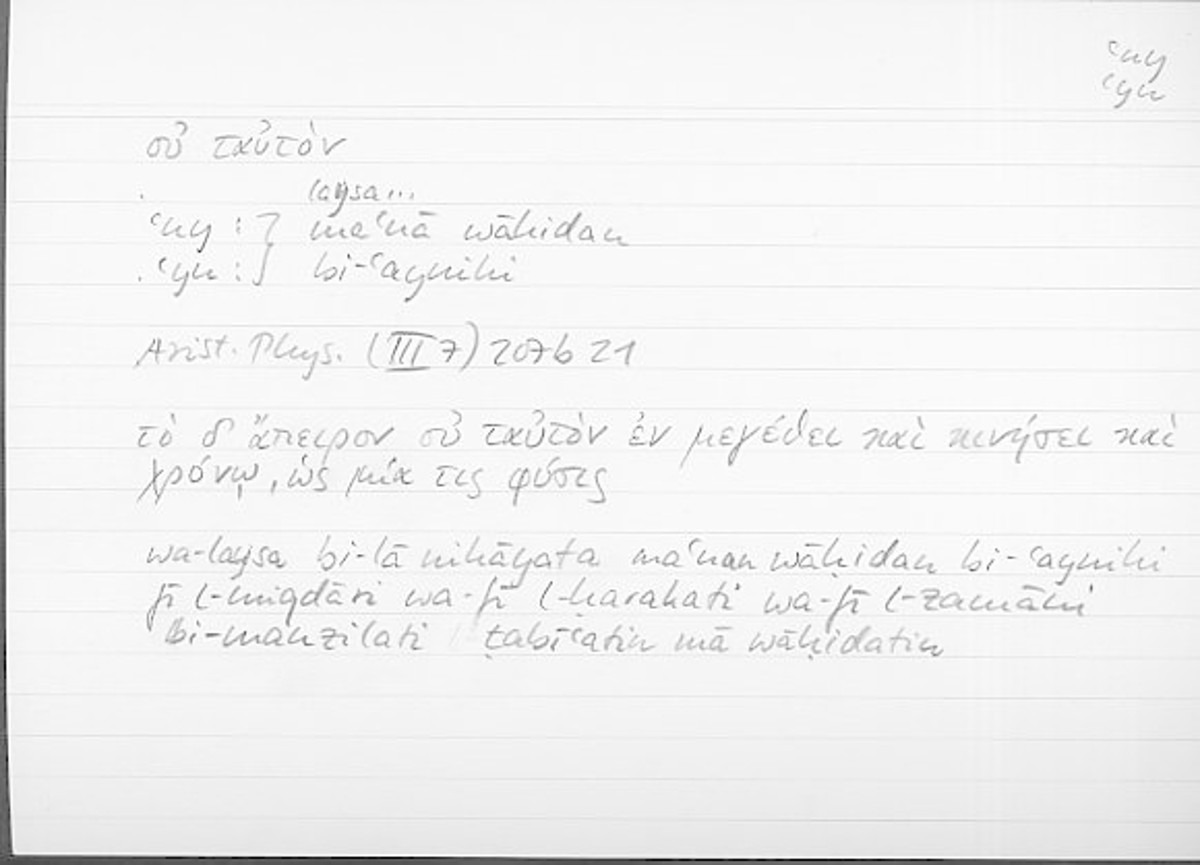 ʿny
ʿyn
οὐ ταὐτὸν
laysa...
ʿny : } maʿnā wāḥidan
. ʿyn : } bi-ʿaynihi
Arist. Phys. (III 7) 207b 21
τὸ δ' ἄπειρον οὐ ταὐτὸν ἐν μεγέθει καὶ κινήσει καὶ
χρόνῳ, ὡς μία τις φύσις
wa-laysa bi-lā nihāyata maʿnan wāḥidan bi-ʿaynihi
fī l-miqdāri wa-fī l-ḥarakati wa-fī l-zamāni
bi-manzilati ṭabīʿatin mā wāḥidatin